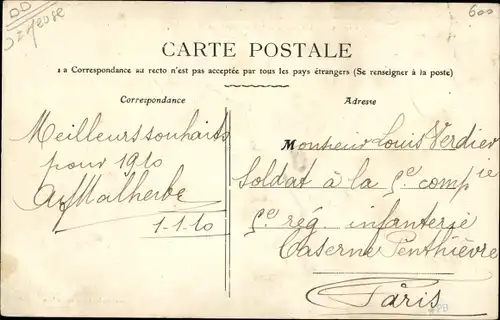 600
CARTE POSTALE
La Correspondance au recto n'est pas acceptée par tous les pays étrangers (Se renseigner à la poste)
Correspondance
Meilleurs souhaits
pour 1910
A. Malherbe
1-1-10
Adresse
Monsieur Louis Verdier
Soldat à la 5e compie
5e rég. infanterie
Caserne Penthièvre
Paris